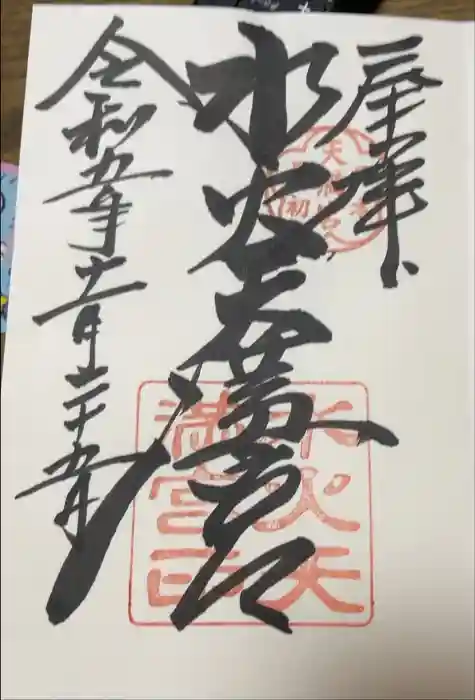 奉拝
水火天満宮
令和五年十二月二十五日
水火天
満宮印